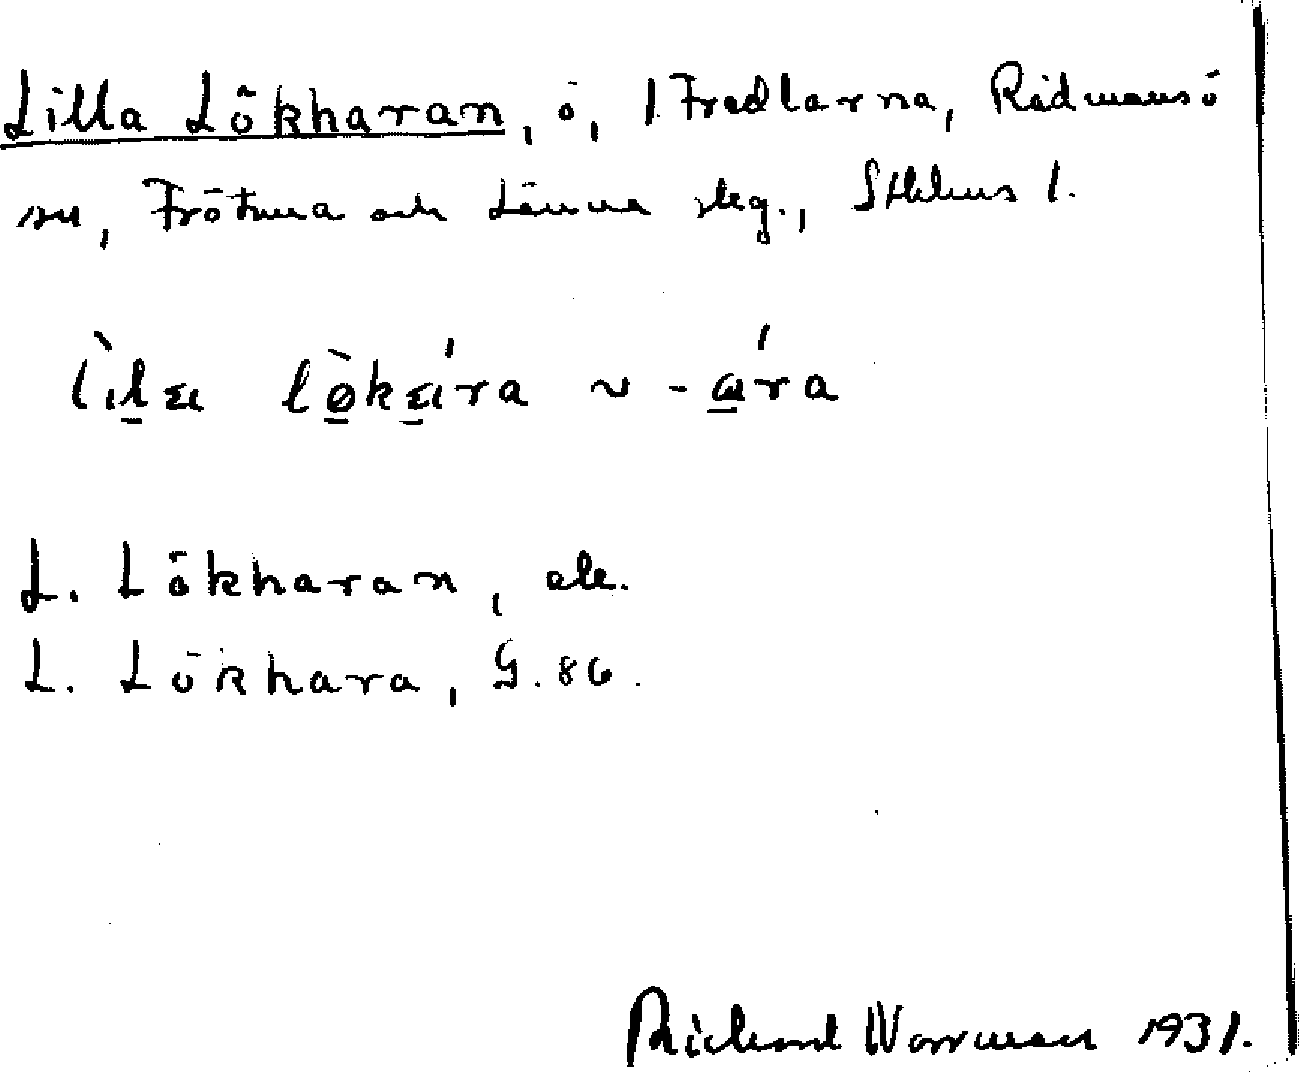 Lilla Lökharan, ö, I Fredlarna, Rådmansö
sn, Frötuna och Länna skg., Sthlms l.
lökára ~ -ára
L. Lökharan, ek.
L. Lökhara, G. 86.
Rickard Worrman 1931.